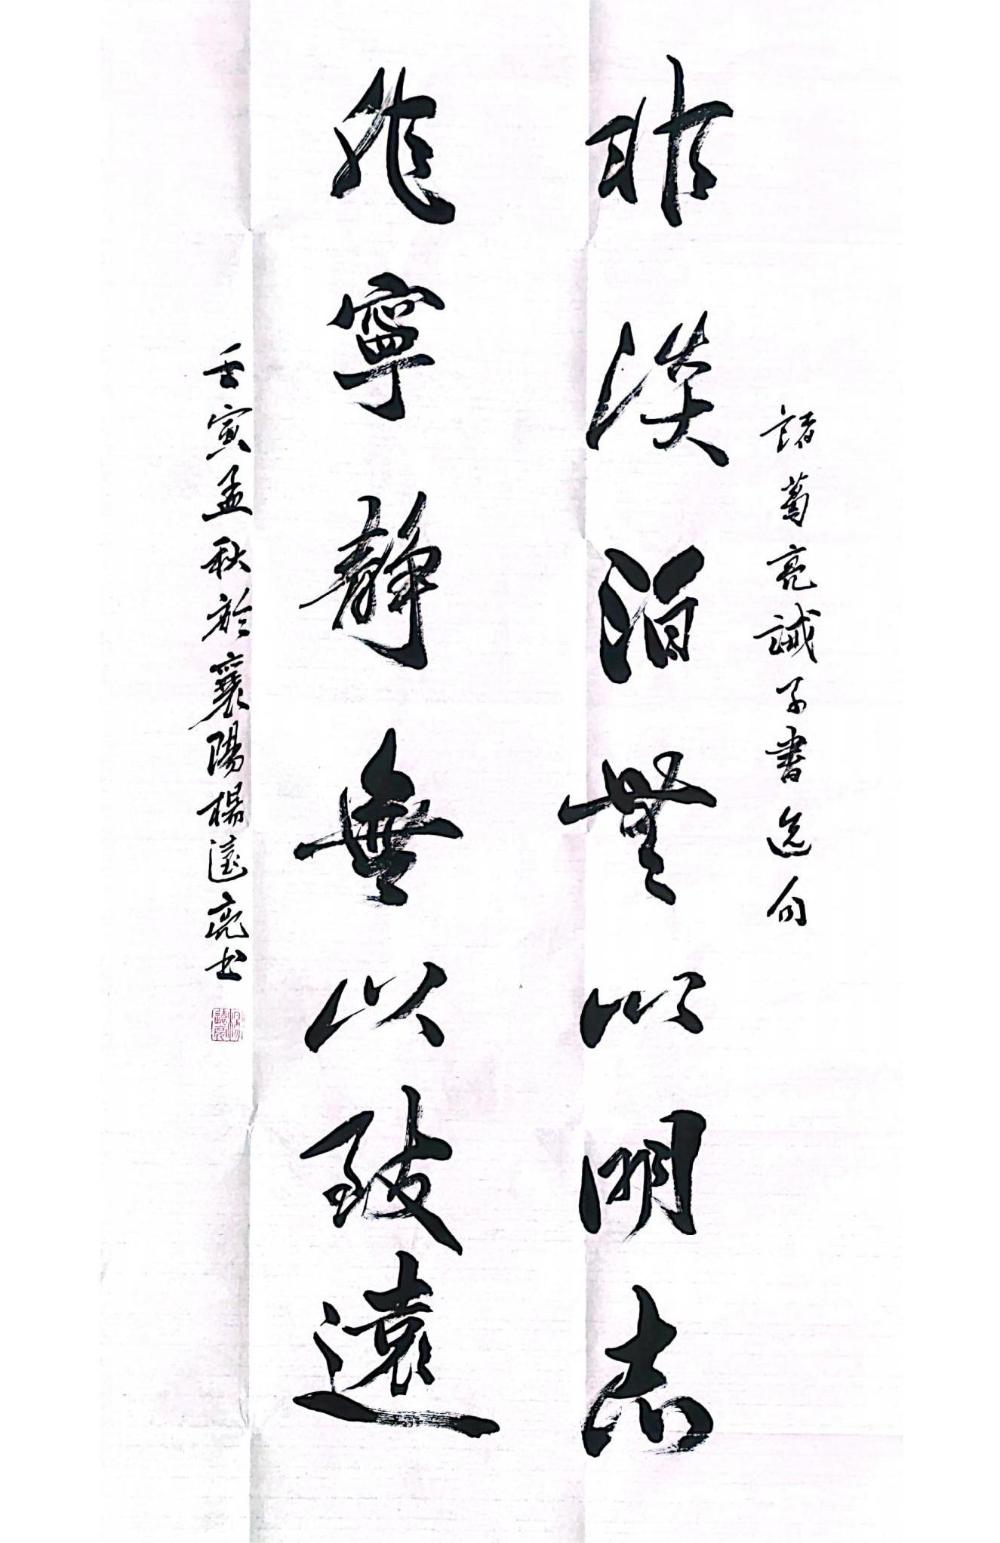 諸葛亮誡子書選句
非淡泊無以明志
非寧靜無以致遠
壬寅孟秋於襄陽楊遠亮书